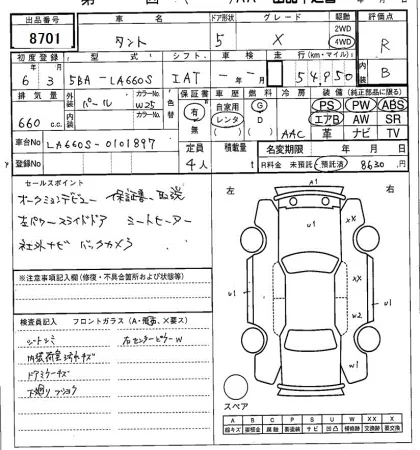 出品番号 車名 ドア形状 グレード 駆動 評価点
8701 タント 5 X 2WD 4WD R
初度登録 型式 シフト 車検 走行(km・マイル) 内装 B
6年 3月 5BA-LA660S IAT -年-月 54,950
排気量 外装色 カラーNo. 色替 保証書 車歴 燃料 冷房 装備(純正部品に限る)
660c.c. パール W25 有 無 自家用 レンタ G D AAC PS PW ABS
内装色 カラーNo. エアB AW SR
革 ナビ TV
車台No LA660S-0101897 定員 積載量 名変期限 年 月 日
登録No 4人 t R料金 未預託 預託済 8630円
セールスポイント
オークションデビュー 保証書、取説
左パワースライドドア シートヒーター
社外ナビ バックカメラ
左 右
A1
W1
XX
U1
XX
W2
U1
W1
※注意事項記入欄(修復・不具合箇所および状態等)
検査員記入 フロントガラス(A・飛石、X要ス)
シートシミ 右センターピラーW
内装荷室汚れキズ
ドアミラーキズ
下廻り
スペア
A B C P S U W XX X
線キズ 要板金 腐触 要塗装 サビ 凹凸 補修跡 交換跡 要交換